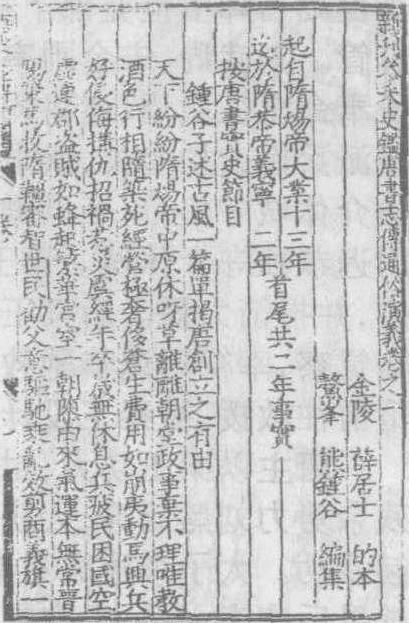 新刊參采史鑑唐書志傳通俗演義卷之一
金陵 薛居士 的本
鰲峯 熊鍾谷 編集
起自隋煬帝大業十三年
迄於隋恭帝義寧二年
首尾共二年事實
按唐書實史節目
鍾谷子述古風一篇單揭唐創立之有由
天下紛紛隋煬帝中原休呀草離離朝堂政事棄不理唯教
酒色行相隨築死經營極奢侈蒼生費用如崩夷動馬興兵
好侵侮搆仇招禍惹災盧經年卒歲無休息兵疲民困國空
虛連郡盜賊如蜂起繁華宮室一朝隳由來氣運本無常晉
陽
世民
勸父意驅馳乘亂效剪商義旗一